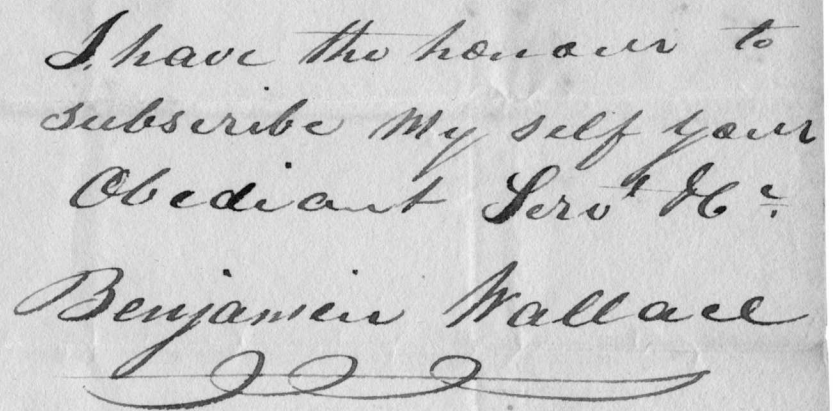 I have the honour to
subscribe My self your
Obediant Servt &c.
Benjamin Wallace